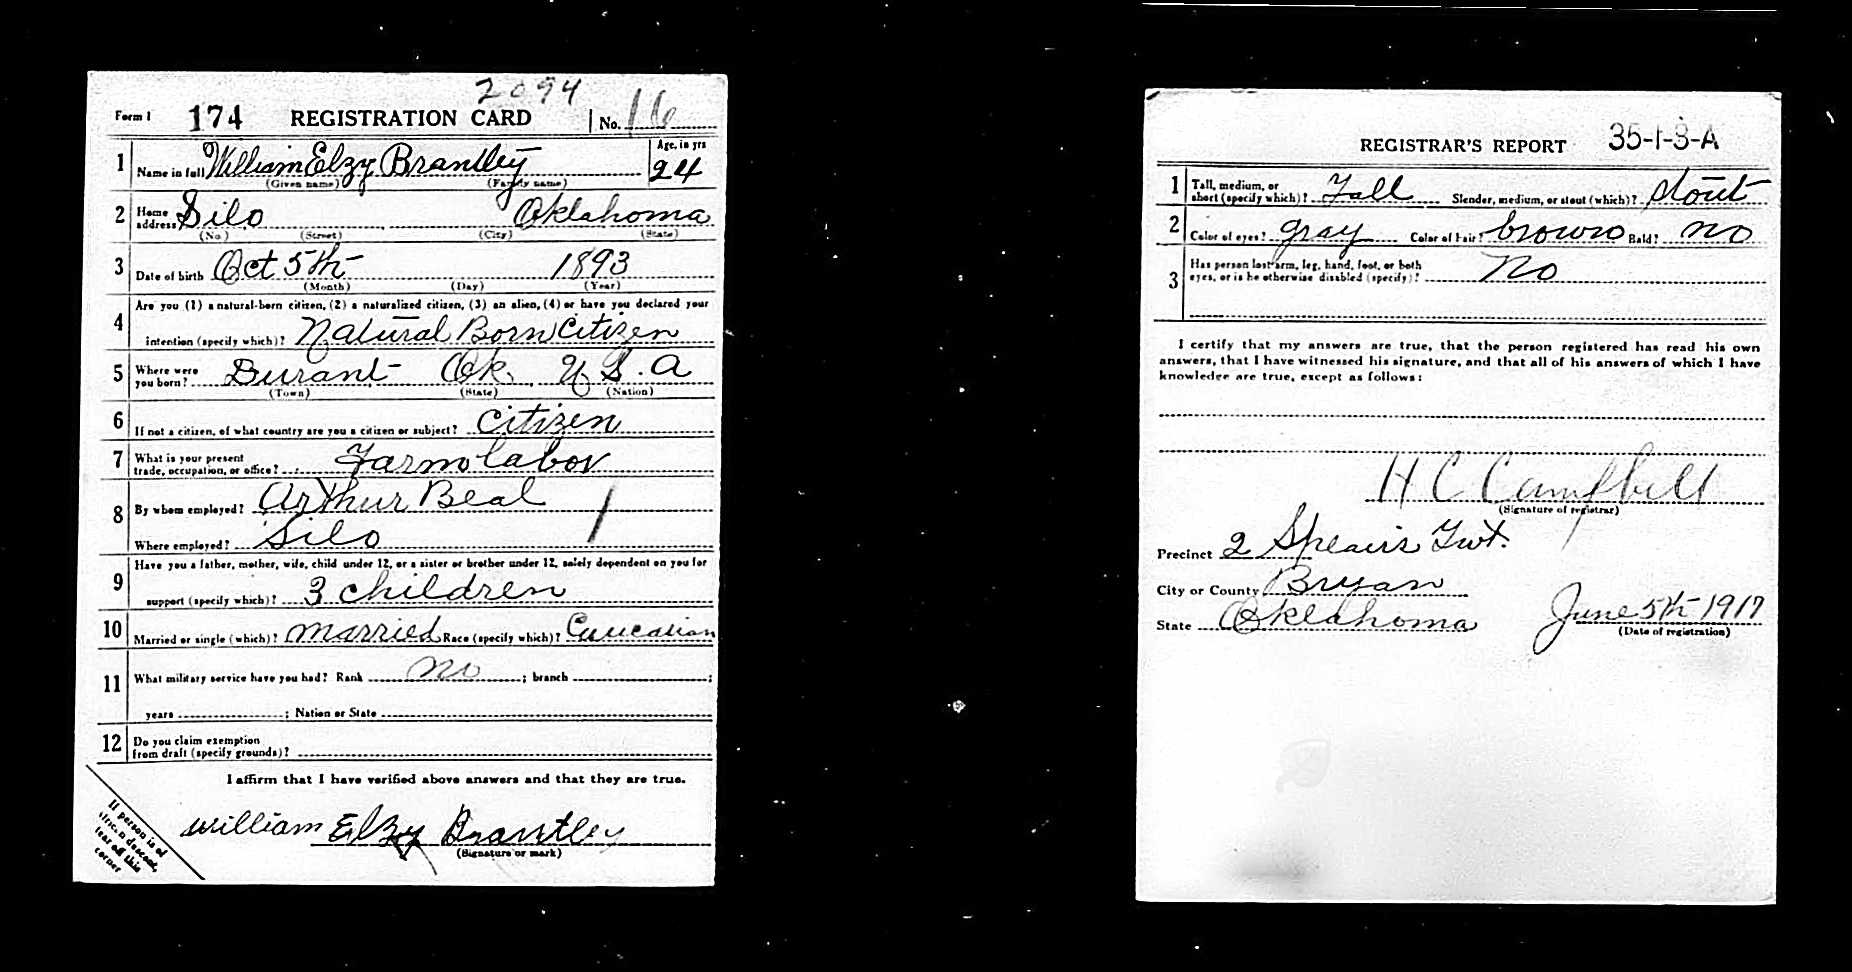 2094
Form 1 174 REGISTRATION CARD No. 16
1 Name in full William Elzy Brantley Age, in yrs 24
(Given name) (Family name)
2 Home address Silo Oklahoma
(No.) (Street) (City) (State)
3 Date of birth Oct 5th 1893
(Month) (Day) (Year)
Are you (1) a natural-born citizen, (2) a naturalized citizen, (3) an alien, (4) or have you declared your
4 intention (specify which)? Natural Born Citizen
5 Where were you born? Durant Ok. U S. A
(Town) (State) (Nation)
6 If not a citizen, of what country are you a citizen or subject? Citizen
7 What is your present trade, occupation, or office? Farm labor
8 By whom employed? Arthur Beal
Where employed? Silo
Have you a father, mother, wife, child under 12, or a sister or brother under 12, solely dependent on you for
9 support (specify which)? 3 children
10 Married or single (which)? married Race (specify which)? Caucasian
11 What military service have you had? Rank no ; branch ;
years ; Nation or State
12 Do you claim exemption
from draft (specify grounds)?
I affirm that I have verified above answers and that they are true.
William Elzy Brantley
(Signature or mark)
If person is of
African descent,
tear off this
corner
REGISTRAR'S REPORT 35-1-3-A
1 Tall, medium, or short (specify which)? Tall Slender, medium, or stout (which)? stout
2 Color of eyes? gray Color of hair? brown Bald? no
3 Has person lost arm, leg, hand, foot, or both
eyes, or is he otherwise disabled (specify)? No
I certify that my answers are true, that the person registered has read his own
answers, that I have witnessed his signature, and that all of his answers of which I have
knowledge are true, except as follows:
H C Campbell
(Signature of registrar)
Precinct 2 Spears Twt.
City or County Bryan
State Oklahoma June 5th 1917
(Date of registration)